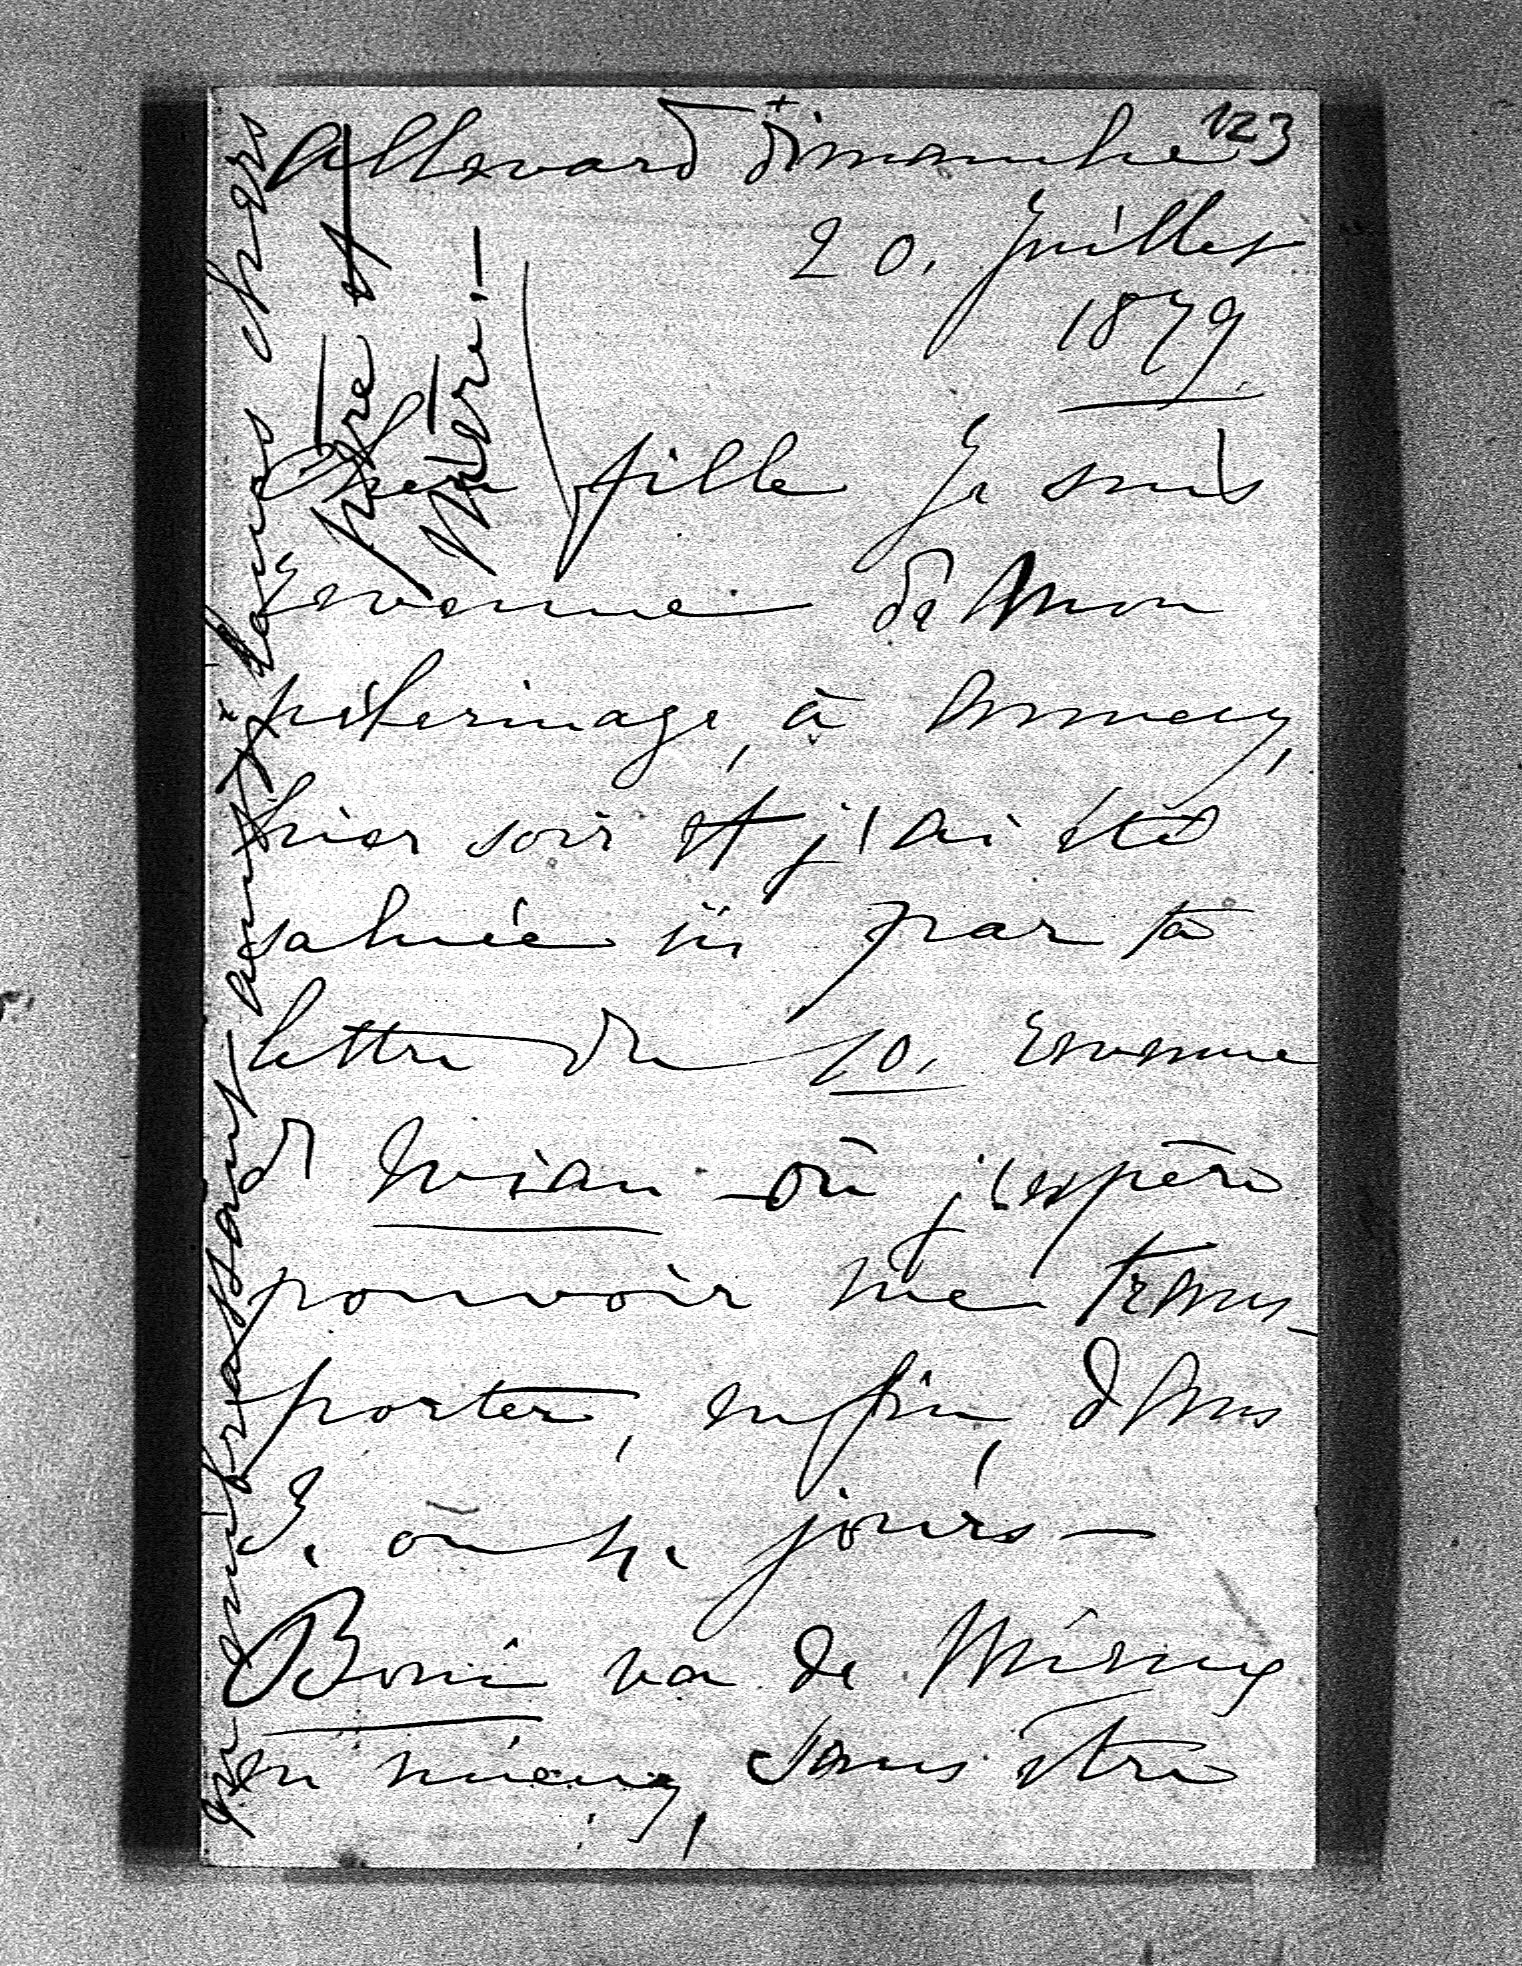 123
Allevard dimanche
20. Juillet
1879.
Chère fille Je suis
revenue de mon
pélerinage, à Annecy,
hier soir et j'ai été
saluée ici par ta
lettre du 10. revenue
d'Evian où j'espère
pouvoir me trans-
porter, enfin, dans
3. ou 4. jours —
Boni va de mieux
en mieux, sans être
en embrassant aussi tes chers
père et
mère. —